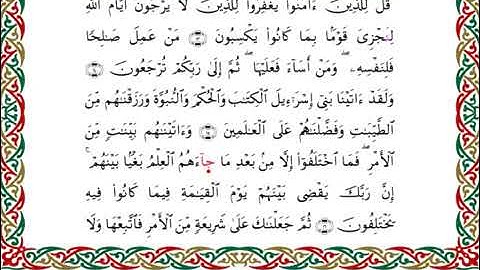 قُل لِّلَّذِينَ ءَامَنُوا۟ يَغْفِرُوا۟ لِلَّذِينَ لَا يَرْجُونَ أَيَّامَ ٱللَّهِ
لِيَجْزِىَ قَوْمًۢا بِمَا كَانُوا۟ يَكْسِبُونَ ۝ مَنْ عَمِلَ صَـٰلِحًا
فَلِنَفْسِهِۦ ۖ وَمَنْ أَسَآءَ فَعَلَيْهَا ۖ ثُمَّ إِلَىٰ رَبِّكُمْ تُرْجَعُونَ ۝
وَلَقَدْ ءَاتَيْنَا بَنِىٓ إِسْرَٰٓءِيلَ ٱلْكِتَـٰبَ وَٱلْحُكْمَ وَٱلنُّبُوَّةَ وَرَزَقْنَـٰهُم مِّنَ
ٱلطَّيِّبَـٰتِ وَفَضَّلْنَـٰهُمْ عَلَى ٱلْعَـٰلَمِينَ ۝ وَءَاتَيْنَـٰهُم بَيِّنَـٰتٍ مِّنَ
ٱلْأَمْرِ ۖ فَمَا ٱخْتَلَفُوٓا۟ إِلَّا مِنۢ بَعْدِ مَا جَآءَهُمُ ٱلْعِلْمُ بَغْيًۢا بَيْنَهُمْ ۚ
إِنَّ رَبَّكَ يَقْضِى بَيْنَهُمْ يَوْمَ ٱلْقِيَـٰمَةِ فِيمَا كَانُوا۟ فِيهِ
يَخْتَلِفُونَ ۝ ثُمَّ جَعَلْنَـٰكَ عَلَىٰ شَرِيعَةٍ مِّنَ ٱلْأَمْرِ فَٱتَّبِعْهَا وَلَا